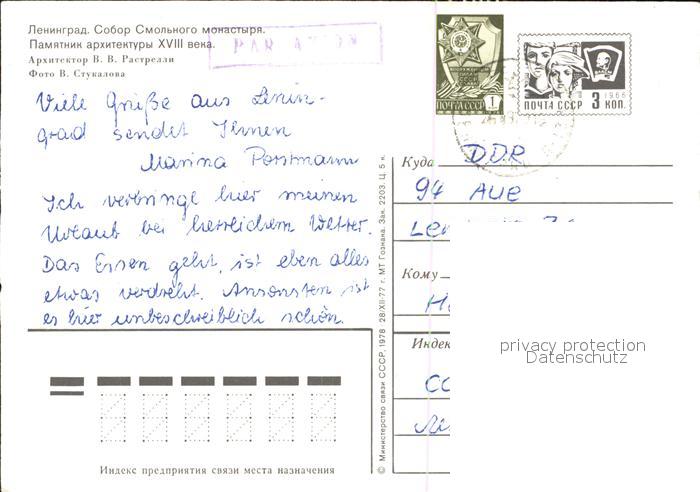 Ленинград. Собор Смольного монастыря.
Памятник архитектуры XVIII века.
Архитектор В. В. Растрелли
Фото В. Стукалова
PAR AVION
Viele Grüße aus Lenin-
grad sendet Ihnen
Marina Porstmann
Ich verbringe hier meinen
Urlaub bei herrlichem Wetter.
Das Essen geht, ist eben alles
etwas verdreht. Ansonsten ist
es hier unbeschreiblich schön.
ПОЧТА СССР 1
1966
ПОЧТА СССР 3 КОП.
Куда DDR
94 AUE
Кому
Индек
privacy protection
Datenschutz
© Министерство связи СССР, 1978 28/XII-77 г. МТ Гознака. Зак. 2203. Ц. 5 к.
Индекс предприятия связи места назначения